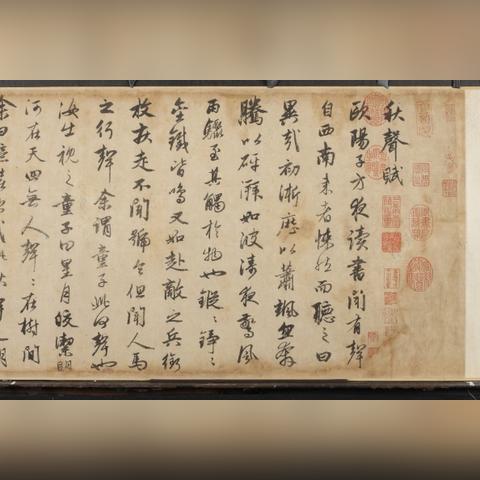 秋聲賦
歐陽子方夜讀書聞有聲
自西南来者悚然而聽之曰
異哉初淅瀝以蕭颯忽奔
騰以砰湃如波濤夜驚風
雨驟至其觸於物也鏦〻錚〻
金鐵皆鳴又如赴敵之兵銜
枚疾走不聞號令但聞人馬
之行聲余謂童子此何聲也
汝出視之童子曰星月皎潔明
河在天四無人聲〻在樹間
余曰噫嘻